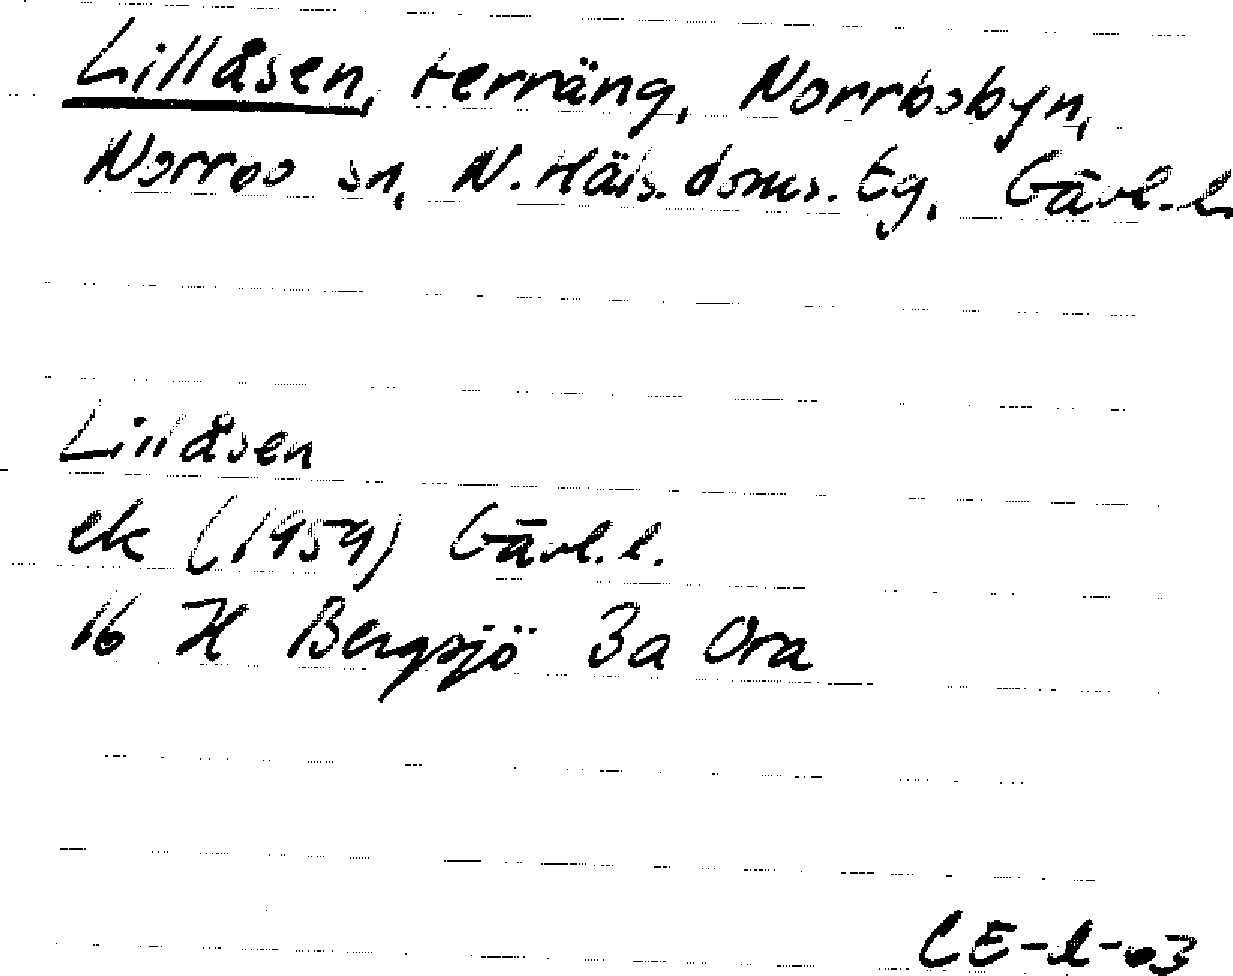 Lillåsen, terräng, Norrbobyn,
Norrbo sn, N. Häls. doms. tg, Gävl. l.
Lillåsen
ek (1959) Gävl. l.
16 H Bergsjö 3a Ora
CE-l-03